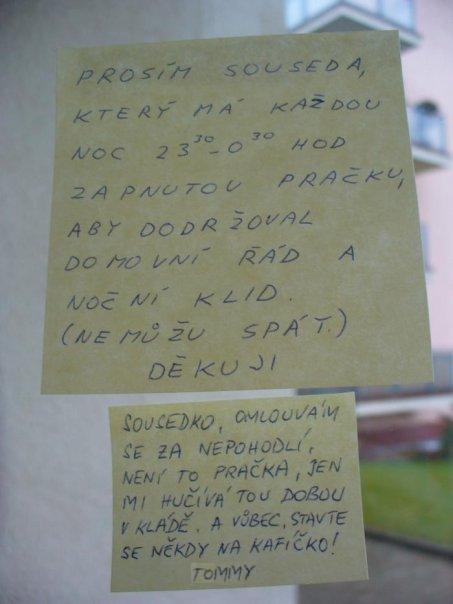 PROSÍM SOUSEDA,
KTERÝ MÁ KAŽDOU
NOC 23³⁰-0³⁰ HOD
ZAPNUTOU PRAČKU,
ABY DODRŽOVAL
DOMOVNÍ ŘÁD A
NOČNÍ KLID.
(NEMŮŽU SPÁT.)
DĚKUJI
SOUSEDKO, OMLOUVÁM
SE ZA NEPOHODLÍ,
NENÍ TO PRAČKA, JEN
MI HUČÍVÁ TOU DOBOU
V KLÁDĚ. A VŮBEC, STAVTE
SE NĚKDY NA KAFÍČKO!
TOMMY